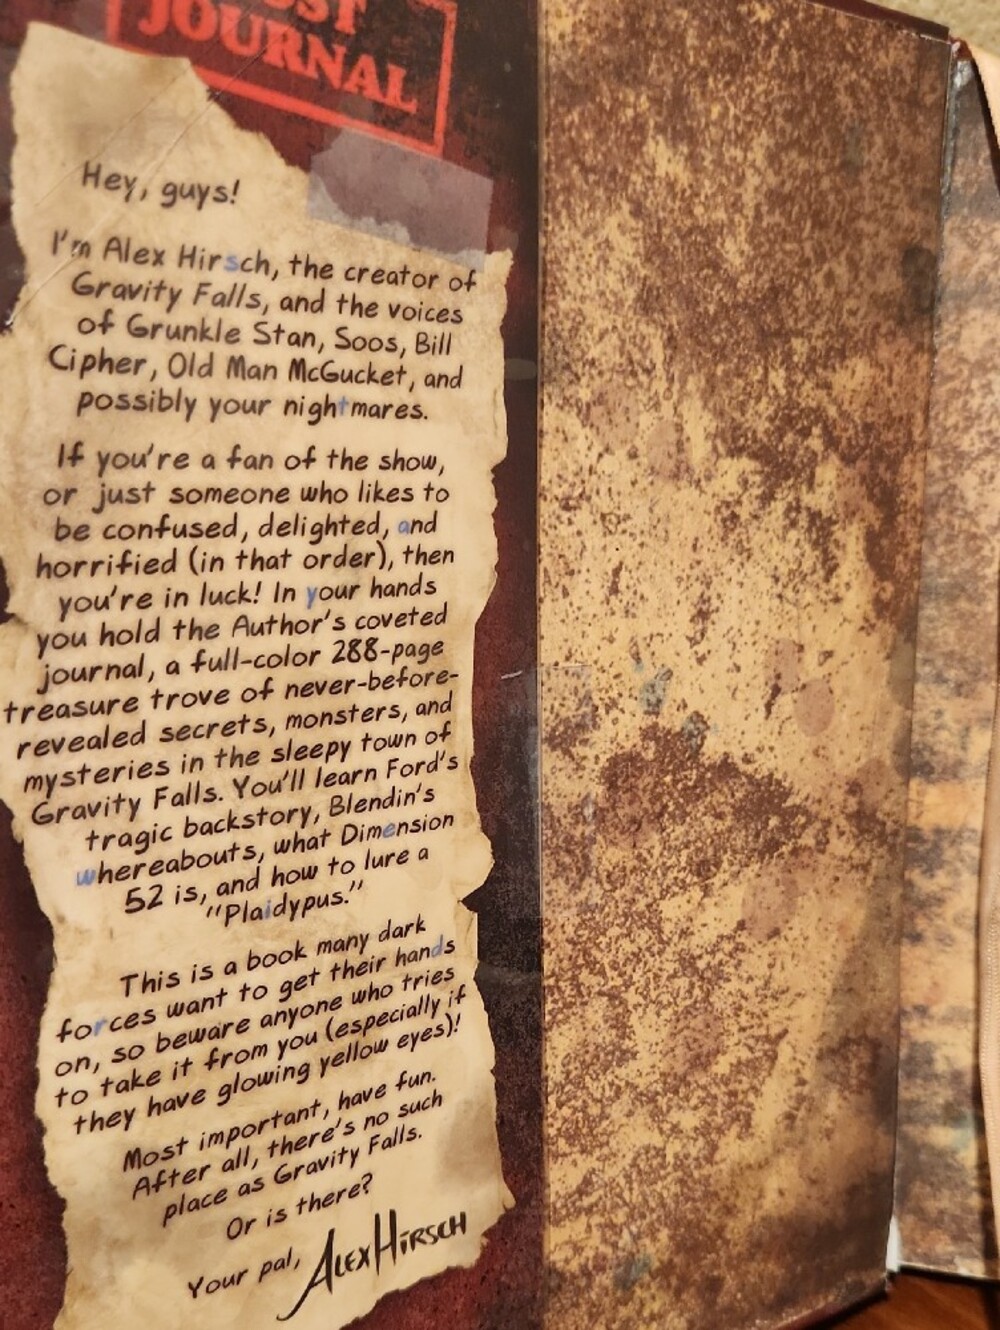 JOURNAL
Hey, guys!
I'm Alex Hirsch, the creator of
Gravity Falls, and the voices
of Grunkle Stan, Soos, Bill
Cipher, Old Man McGucket, and
possibly your nightmares.
If you're a fan of the show,
or just someone who likes to
be confused, delighted, and
horrified (in that order), then
you're in luck! In your hands
you hold the Author's coveted
journal, a full-color 288-page
treasure trove of never-before-
revealed secrets, monsters, and
mysteries in the sleepy town of
Gravity Falls. You'll learn Ford's
tragic backstory, Blendin's
whereabouts, what Dimension
52 is, and how to lure a
"Plaidypus."
This is a book many dark
forces want to get their hands
on, so beware anyone who tries
to take it from you (especially if
they have glowing yellow eyes)!
Most important, have fun.
After all, there's no such
place as Gravity Falls.
Or is there?
Your pal, ALEX HIRSCH